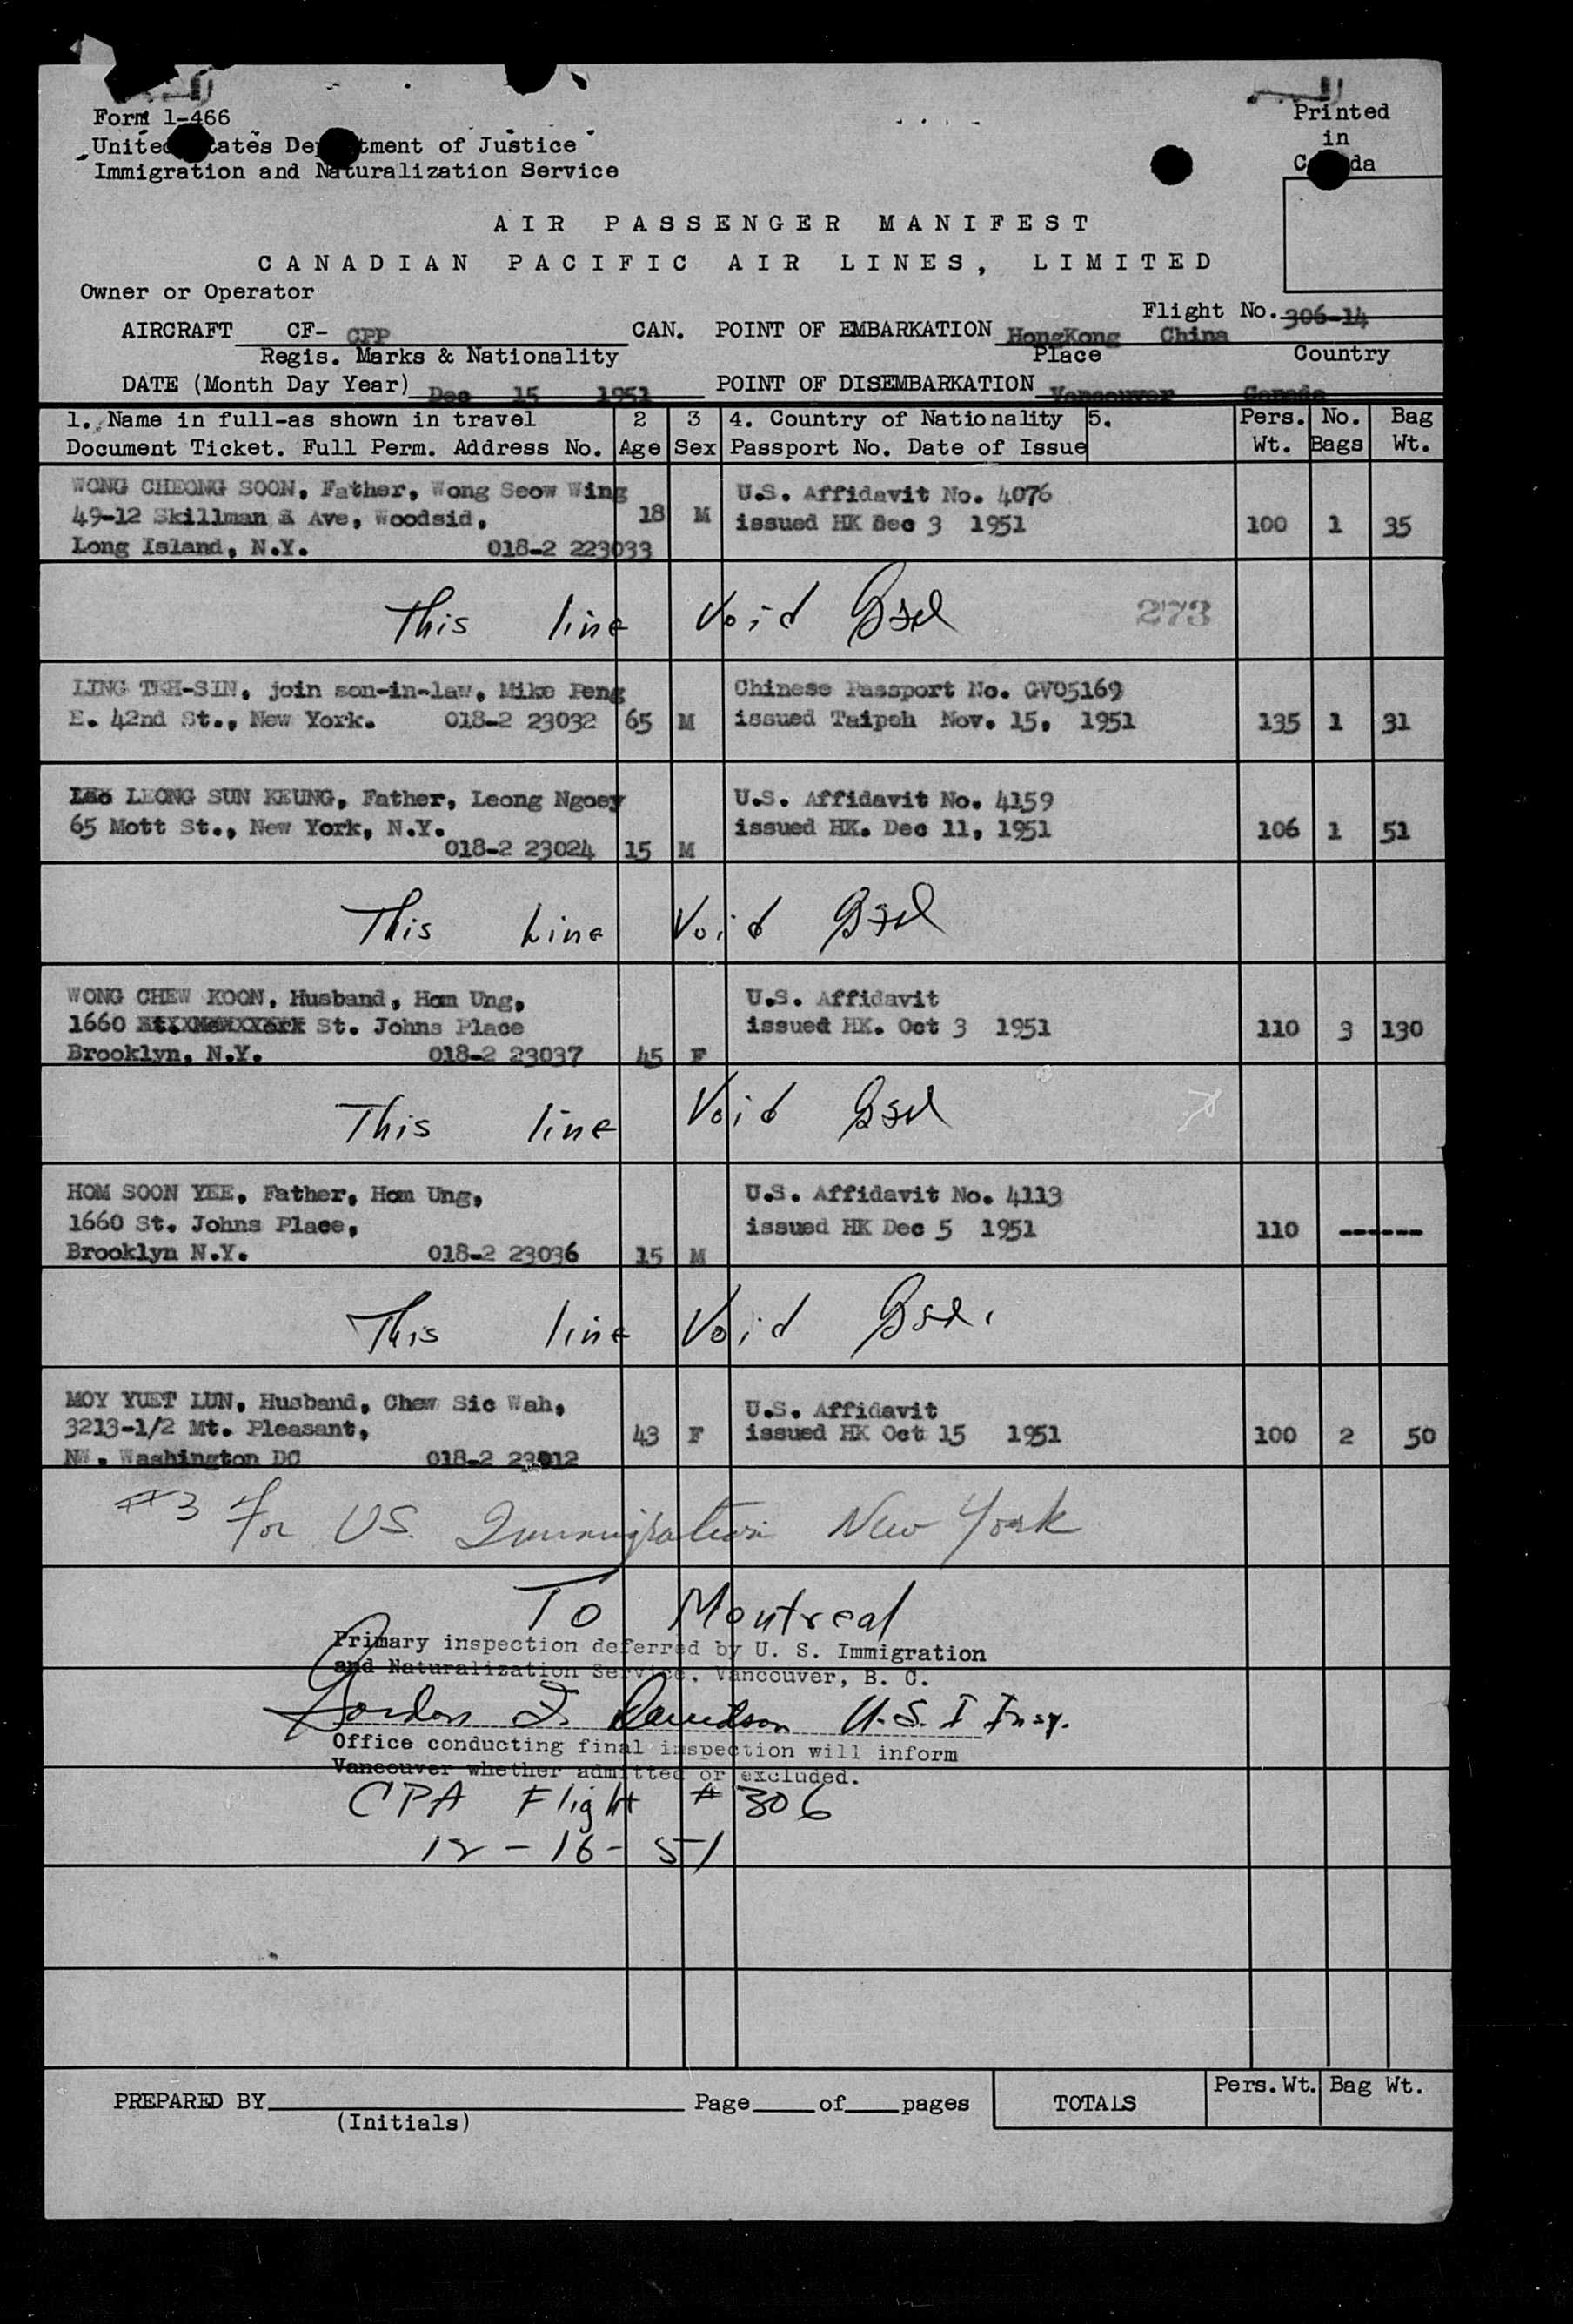 Form 1-466
Printed
United States Department of Justice
in
Immigration and Naturalization Service
Canada
AIR PASSENGER MANIFEST
CANADIAN PACIFIC AIR LINES, LIMITED
Owner or Operator
Flight No. 306-14
AIRCRAFT CF- CPP CAN. POINT OF EMBARKATION HongKong China
Regis. Marks & Nationality Place Country
DATE (Month Day Year) Dec 15 1951 POINT OF DISEMBARKATION Vancouver Canada
1. Name in full-as shown in travel 2 3 4. Country of Nationality 5. Pers. No. Bag
Document Ticket. Full Perm. Address No. Age Sex Passport No. Date of Issue Wt. Bags Wt.
WONG CHEONG SOON, Father, Wong Seow Wing U.S. Affidavit No. 4076
49-12 Skillman & Ave, Woodsid, 18 M issued HK Dec 3 1951 100 1 35
Long Island, N.Y. 018-2 223033
This line Void 273
LING TEH-SIN, join son-in-law, Mike Peng Chinese Passport No. GV05169
E. 42nd St., New York. 018-2 23032 65 M issued Taipeh Nov. 15, 1951 135 1 31
LEONG SUN KEUNG, Father, Leong Ngoey U.S. Affidavit No. 4159
65 Mott St., New York, N.Y. issued HK. Dec 11, 1951 106 1 51
018-2 23024 15 M
This Line Void
WONG CHEW KOON, Husband, Hom Ung, U.S. Affidavit
1660 St. Johns Place issued HK. Oct 3 1951 110 3 130
Brooklyn, N.Y. 018-2 23037 45 F
This line Void
HOM SOON YEE, Father, Hom Ung, U.S. Affidavit No. 4113
1660 St. Johns Place, issued HK Dec 5 1951 110 ------
Brooklyn N.Y. 018-2 23036 15 M
This line Void
MOY YUET LUN, Husband, Chew Sic Wah, U.S. Affidavit
3213-1/2 Mt. Pleasant, 43 F issued HK Oct 15 1951 100 2 50
NW. Washington DC 018-2 23012
#3 For US. Immigration New York
To Montreal
Primary inspection deferred by U. S. Immigration
and Naturalization Service, Vancouver, B. C.
Gordon I. Davidson U.S. I Insp.
Office conducting final inspection will inform
Vancouver whether admitted or excluded.
CPA Flight #306
12-16-51
Pers. Wt. Bag Wt.
PREPARED BY Page of pages TOTALS
(Initials)